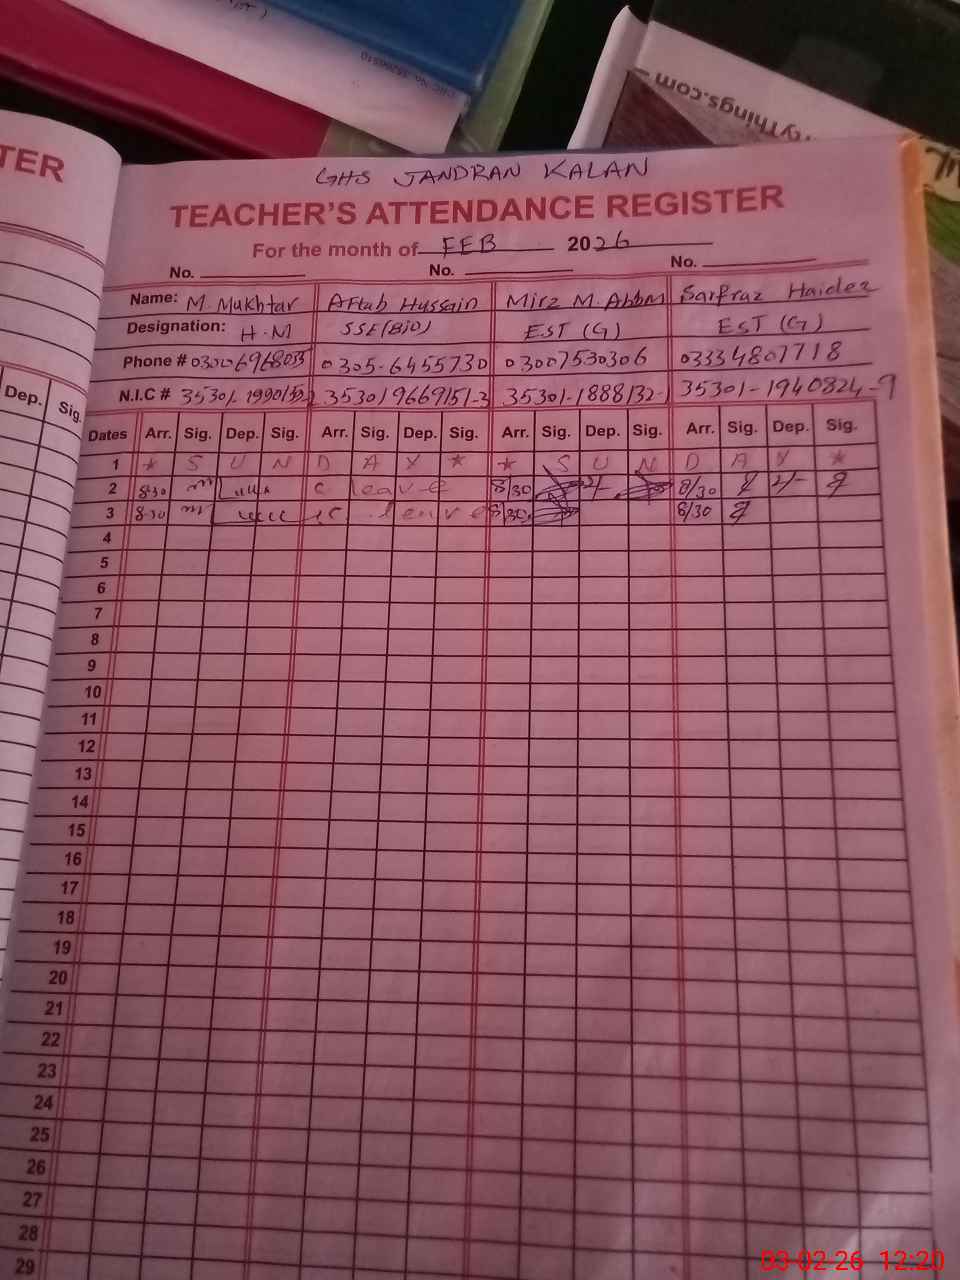 CNIC No. 35200510
nyThings.com
TER
GHS JANDRAN KALAN
TEACHER'S ATTENDANCE REGISTER
For the month of FEB 2026
No. No. No.
Name: M. Mukhtar Aftab Hussain Mirz M. Sarfraz Haider
Designation: H.M SSE(BiO) EST (G) EST (G)
Phone # 03006968033 0305-6455730 03007530306 03334807718
N.I.C # 35301-1940824-9
Dep. Sig.
Dates Arr. Sig. Dep. Sig. Arr. Sig. Dep. Sig. Arr. Sig. Dep. Sig. Arr. Sig. Dep. Sig.
1 * S U N D A Y * * S U N D A Y *
2 8:30 c leave 8/30 2/- 8/30 2/-
3 8:30 c leave 8/30 8/30
4
5
6
7
8
9
10
11
12
13
14
15
16
17
18
19
20
21
22
23
24
25
26
27
28
29
03-02-26 12:20